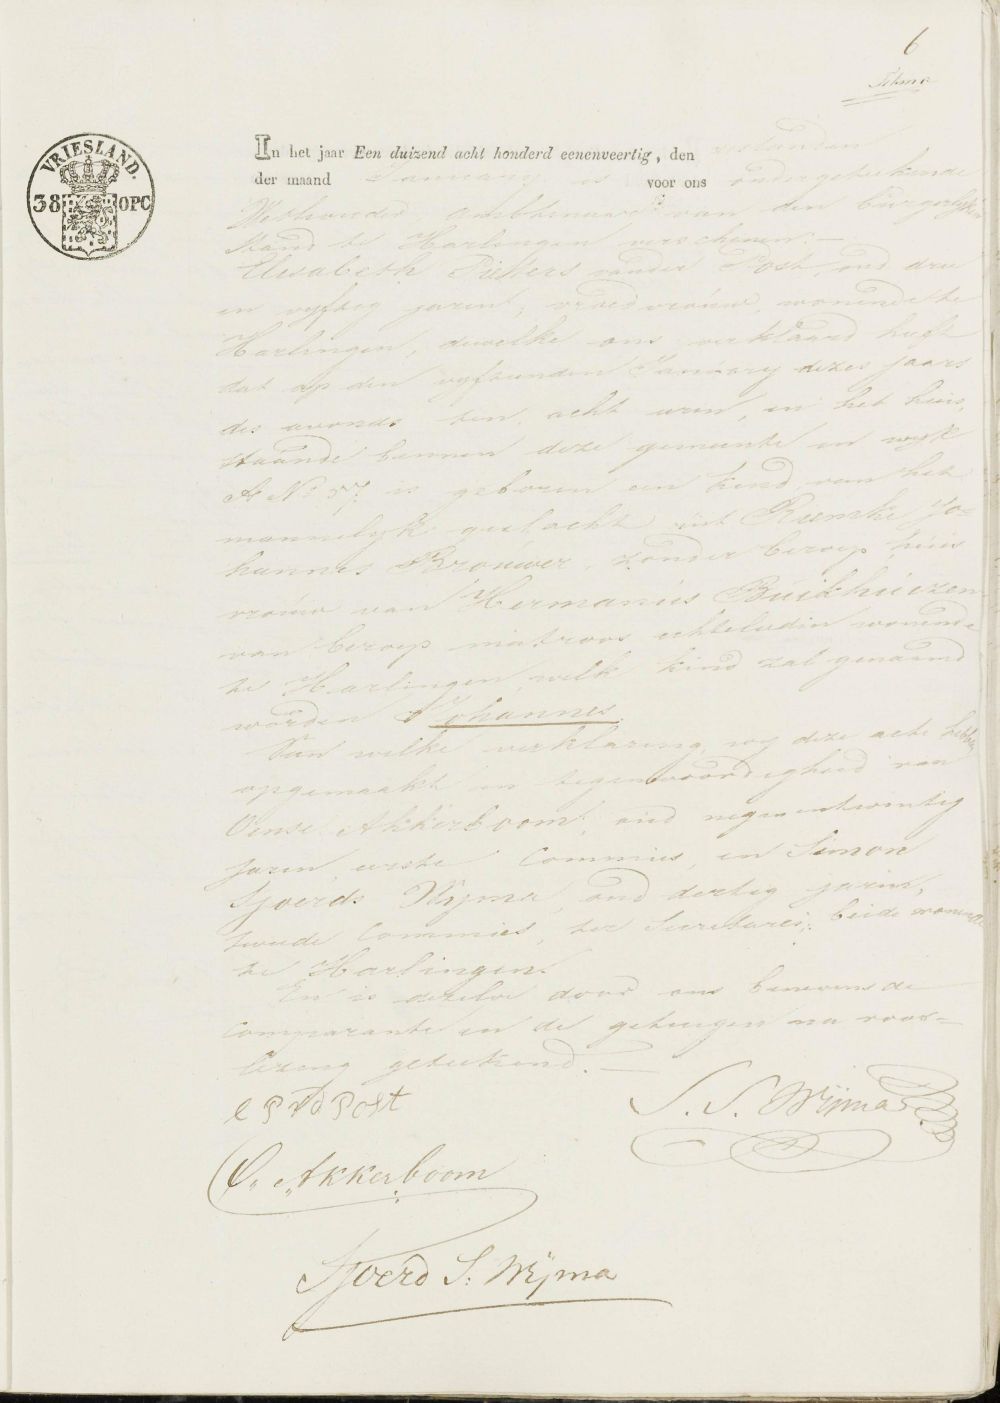 6
VRIESLAND.
38 OPC
In het jaar Een duizend acht honderd eenenveertig, den
der maand January is voor ons ondergeteekende
Wethouder, Ambtenaar van den burgerlyken
Stand te Harlingen verschenen:
Elisabeth Pieters vander Post, oud drie
en vyftig jaren, vroedvrouw, wonende te
Harlingen, dewelke ons verklaard heeft
dat op den vyftienden January dezes jaars
des avonds ten acht uren, in het huis,
staande binnen deze gemeente in wyk
A No 57, is geboren een kind van het
mannelyk geslacht uit Riemke Jo=
hannes Brouwer, zonder beroep, huis
vrouw van Hermanus Buikhuizen
van beroep matroos, echtelieden wonende
te Harlingen, welk kind zal genaamd
worden Johannes
Van welke verklaring, wy deze acte hebben
opgemaakt in tegenwoordigheid van
Oense Akkerboom, oud negenentwintig
jaren, eerste Commies, en Simon
Sjoerds Wijma, oud dertig jaren,
tweede Commies, ter Secretarie, beide wonende
te Harlingen.
En is dezelve door ons benevens de
Comparante en de getuigen na voor=
lezing geteekend.
e P vd Post
S. S. Wijma
O. Akkerboom
Sjoerd S. Wijma